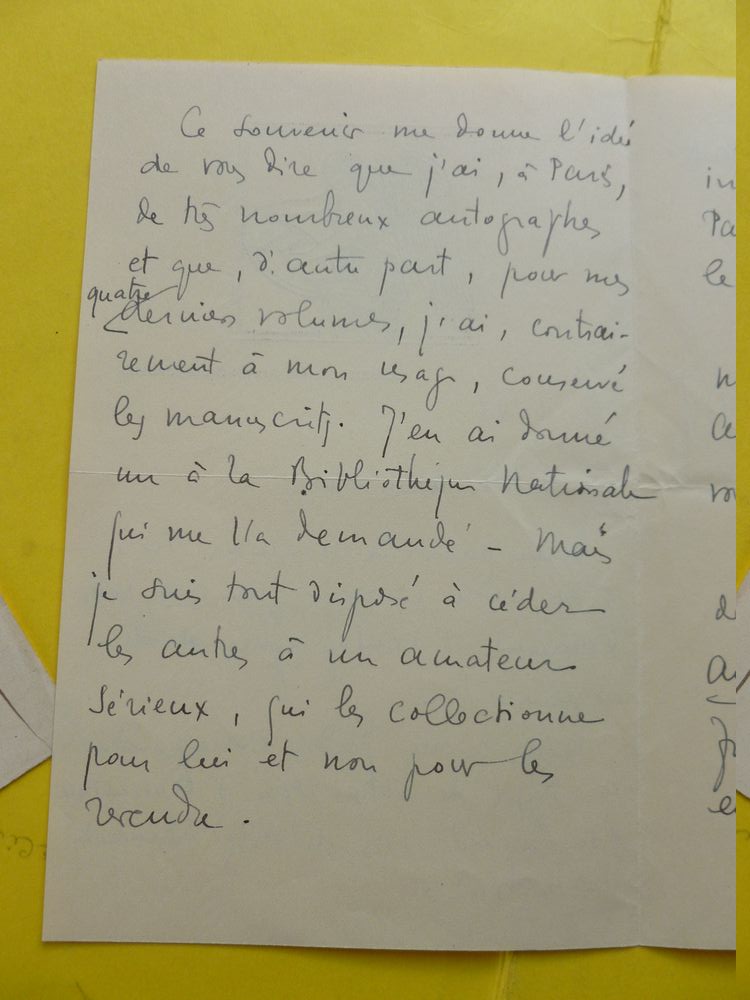 Ce souvenir me donne l'idée
de vous dire que j'ai, à Paris,
de très nombreux autographes
et que, d'autre part, pour mes
quatre
derniers volumes, j'ai, contrai-
rement à mon usage, conservé
les manuscrits. J'en ai donné
un à la Bibliothèque Nationale
qui me l'a demandé - Mais
je suis tout disposé à céder
les autres à un amateur
sérieux, qui les collectionne
pour lui et non pour les
revendre.
in
Pa
le